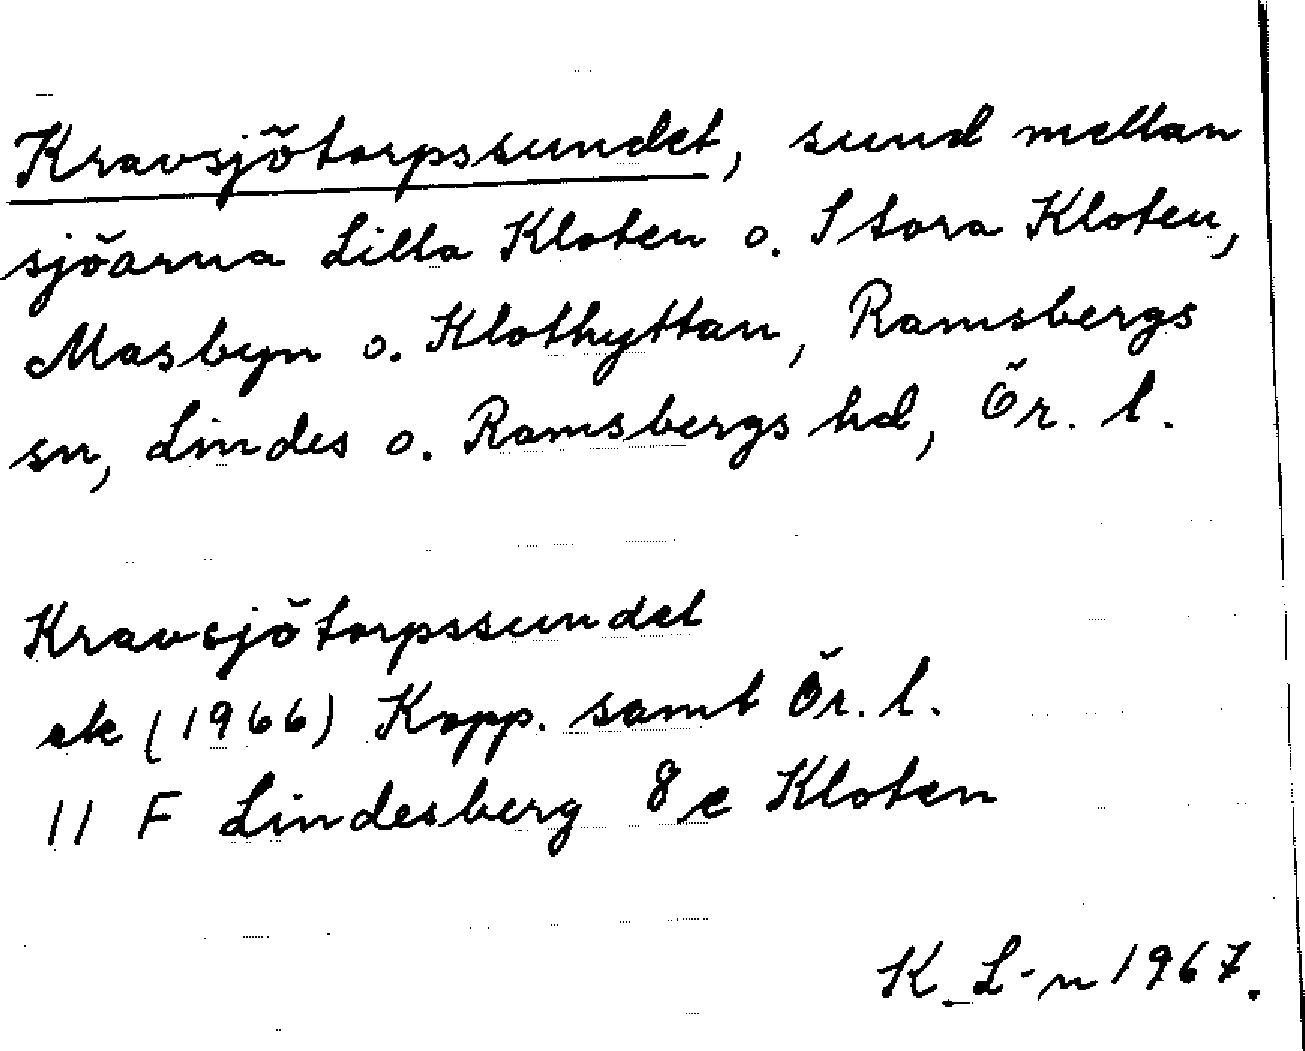 Kravsjötorpssundet, sund mellan
sjöarna Lilla Kloten o. Stora Kloten,
Masbyn o. Klothyttan, Ramsbergs
sn, Lindes o. Ramsbergs hd, Ör. l.
Kravsjötorpssundet
ek (1966) Kopp. samt Ör. l.
11 F Lindesberg 8 e Kloten
K L-n 1967.